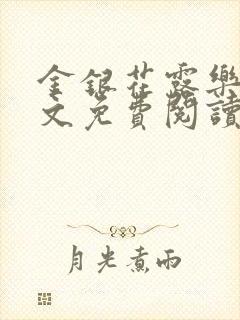 金銀花露樂
文免費閱讀
月光煮雨